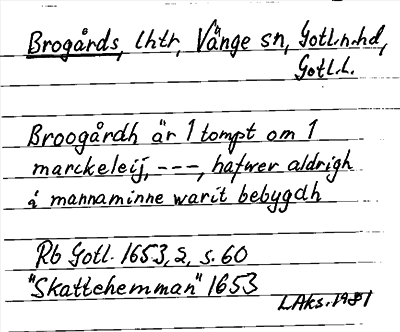 Brogårds, lhtr, Vänge sn, Gotl.n.hd,
Gotl.l.
Broogårdh är 1 tompt om 1
marckeleij, ---, hafwer aldrigh
i mannaminne warit bebygdh
Rb Gotl. 1653, 2, s. 60
"Skattehemman" 1653
LAks. 1981